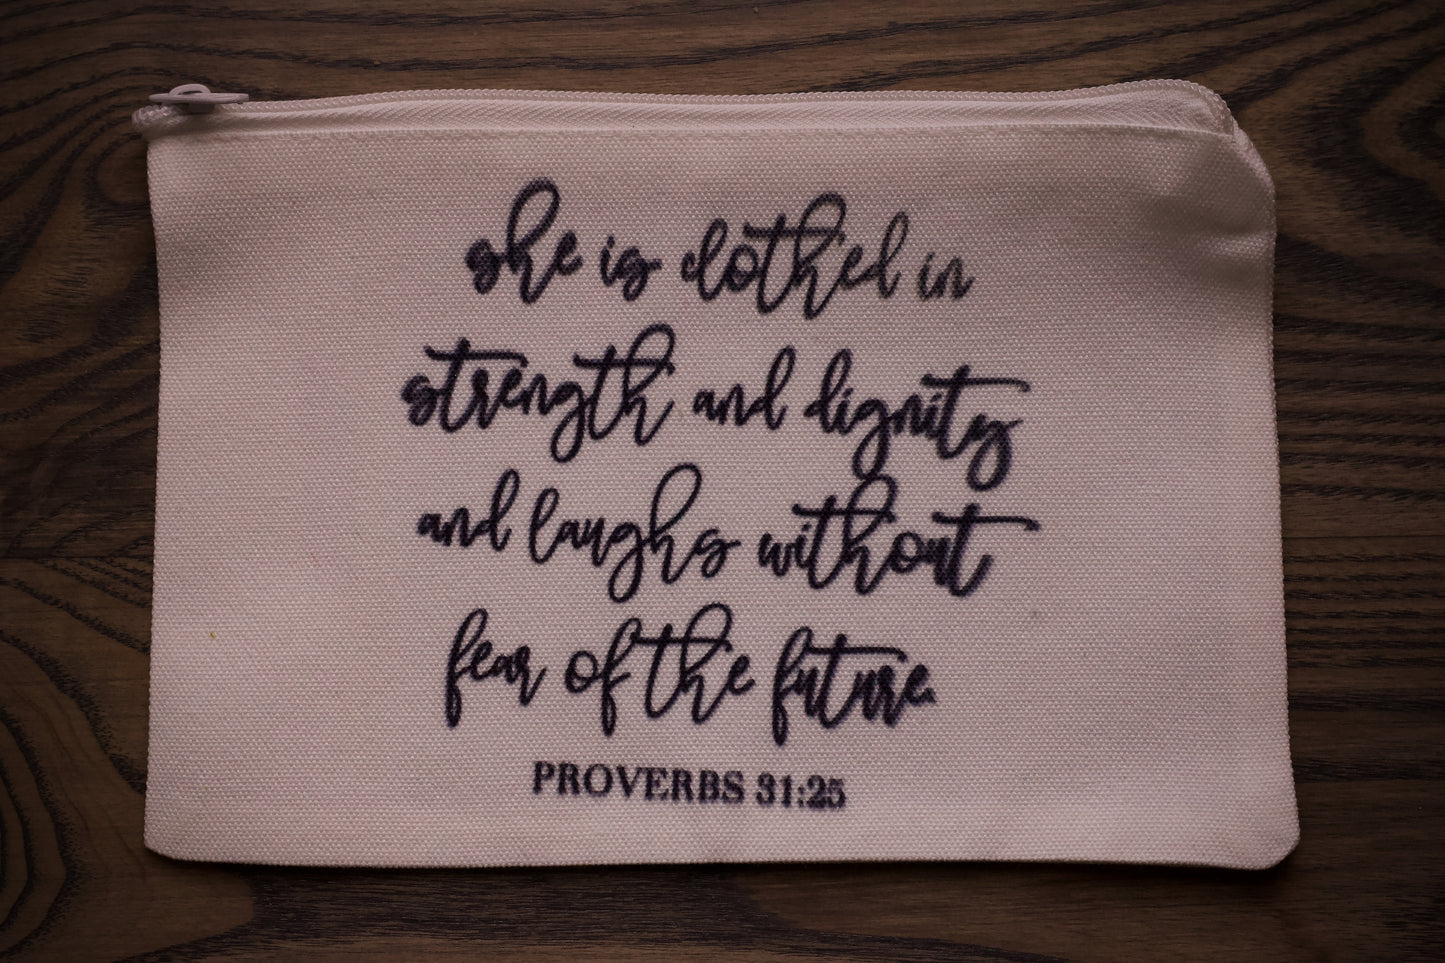 she is clothed in
strength and dignity
and laughs without
fear of the future.
PROVERBS 31:25